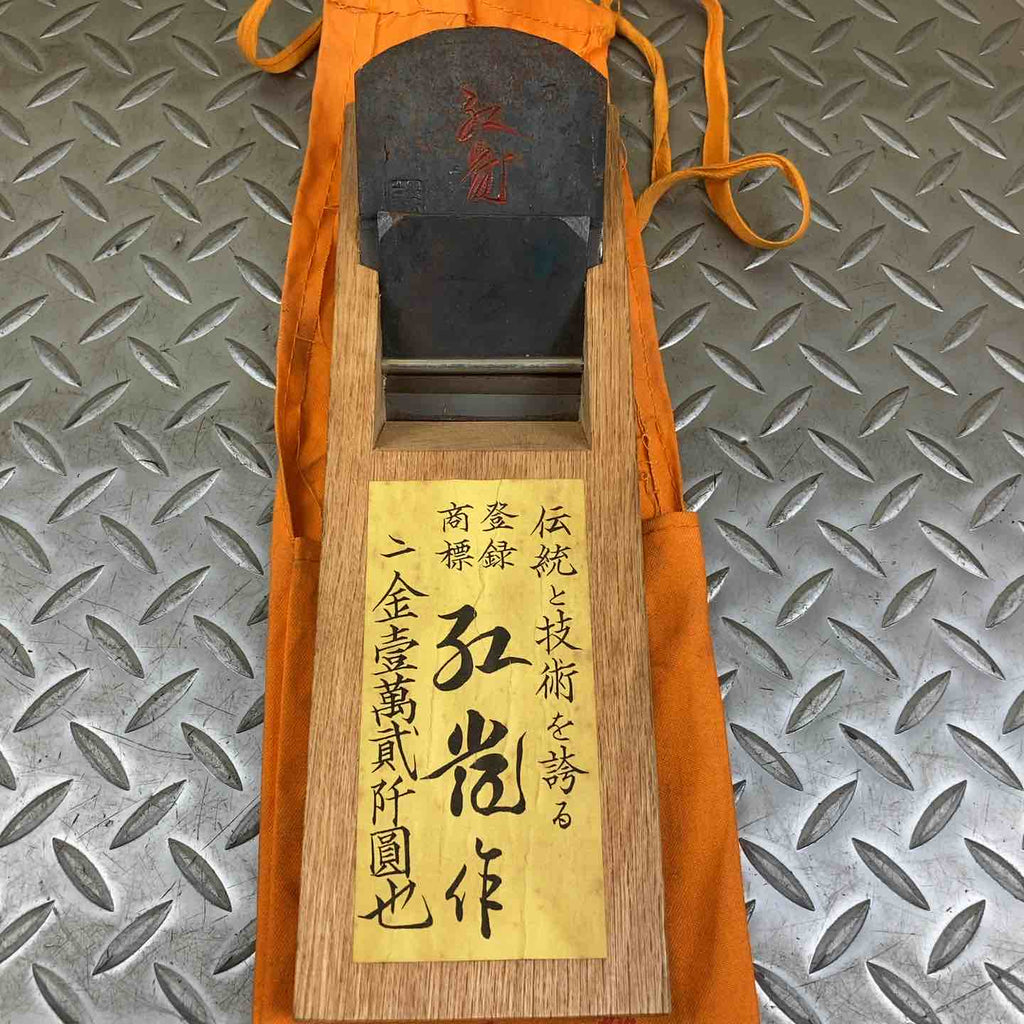 紅
伝統と技術を誇る
登録
商標
紅
作
二金壹萬貳阡圓也